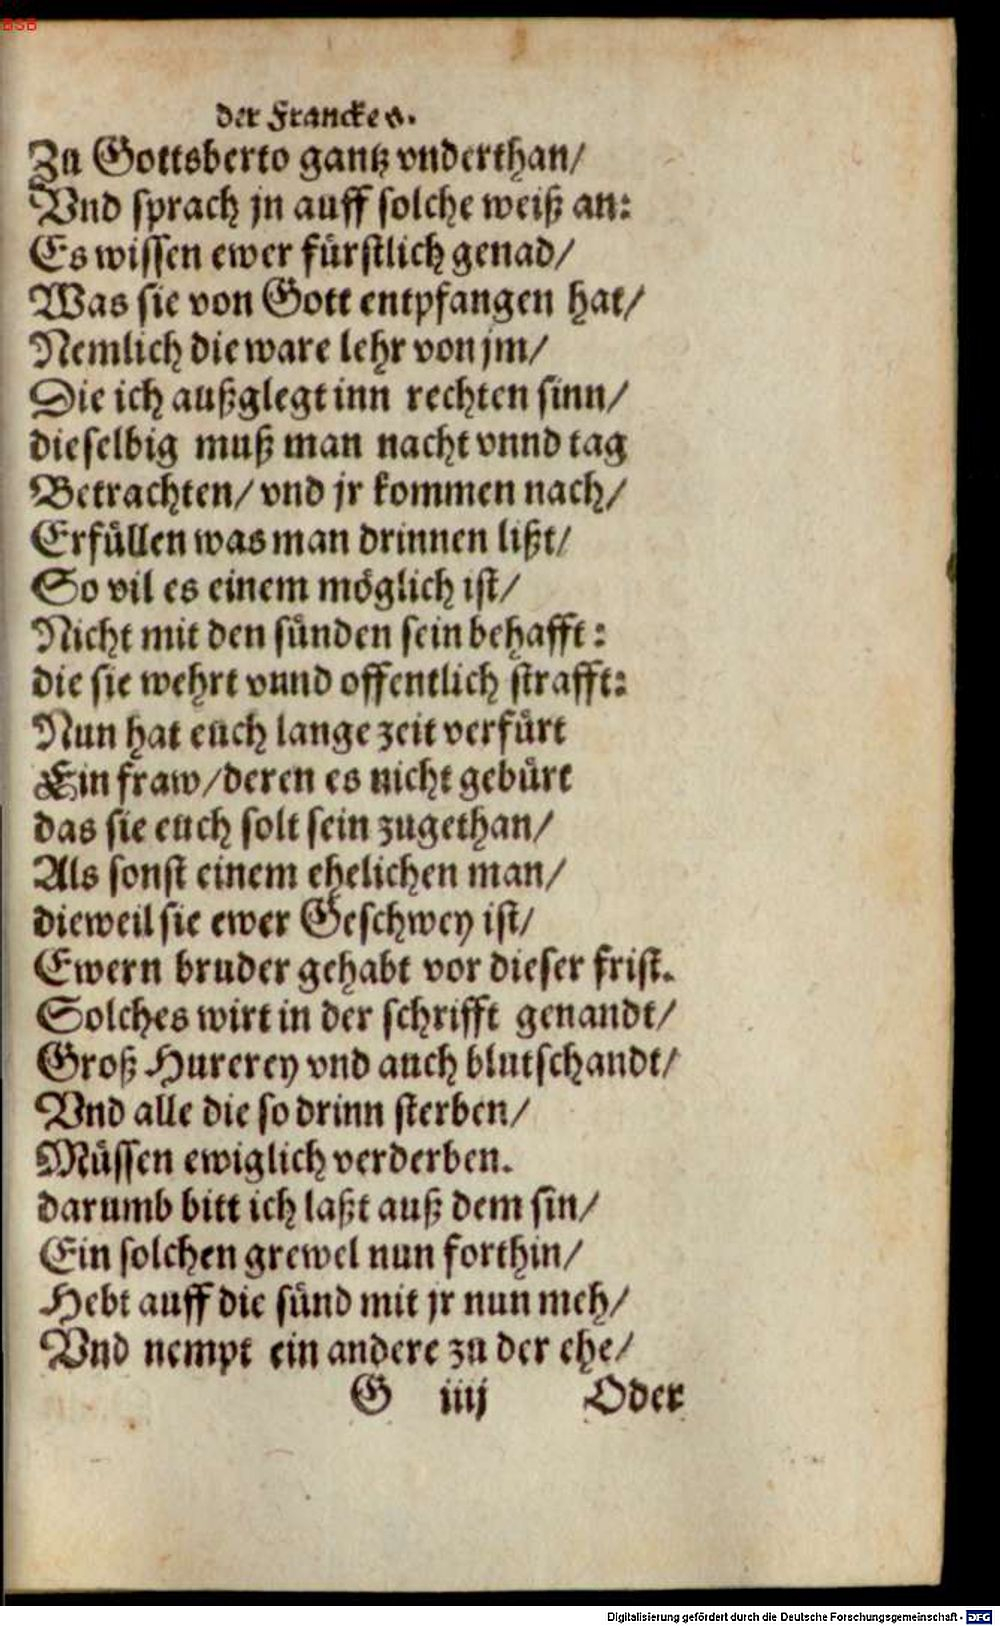 BSB
der Francken.
Zu Gottsberto gantz vnderthan/
Vnd sprach jn auff solche weiß an:
Es wissen ewer fürstlich genad/
Was sie von Gott entpfangen hat/
Nemlich die ware lehr von jm/
Die ich außglegt inn rechten sinn/
dieselbig muß man nacht vnnd tag
Betrachten/ vnd jr kommen nach/
Erfüllen was man drinnen lißt/
So vil es einem möglich ist/
Nicht mit den sünden sein behafft:
die sie wehrt vnnd offentlich strafft:
Nun hat euch lange zeit verfürt
Ein fraw/ deren es nicht gebürt
das sie euch solt sein zugethan/
Als sonst einem ehelichen man/
dieweil sie ewer Geschwey ist/
Ewern bruder gehabt vor dieser frist.
Solches wirt in der schrifft genandt/
Groß Hurerey vnd auch blutschandt/
Vnd alle die so drinn sterben/
Müssen ewiglich verderben.
darumb bitt ich laßt auß dem sin/
Ein solchen grewel nun forthin/
Hebt auff die sünd mit jr nun meh/
Vnd nempt ein andere zu der ehe/
G iiij Oder
Digitalisierung gefördert durch die Deutsche Forschungsgemeinschaft - DFG